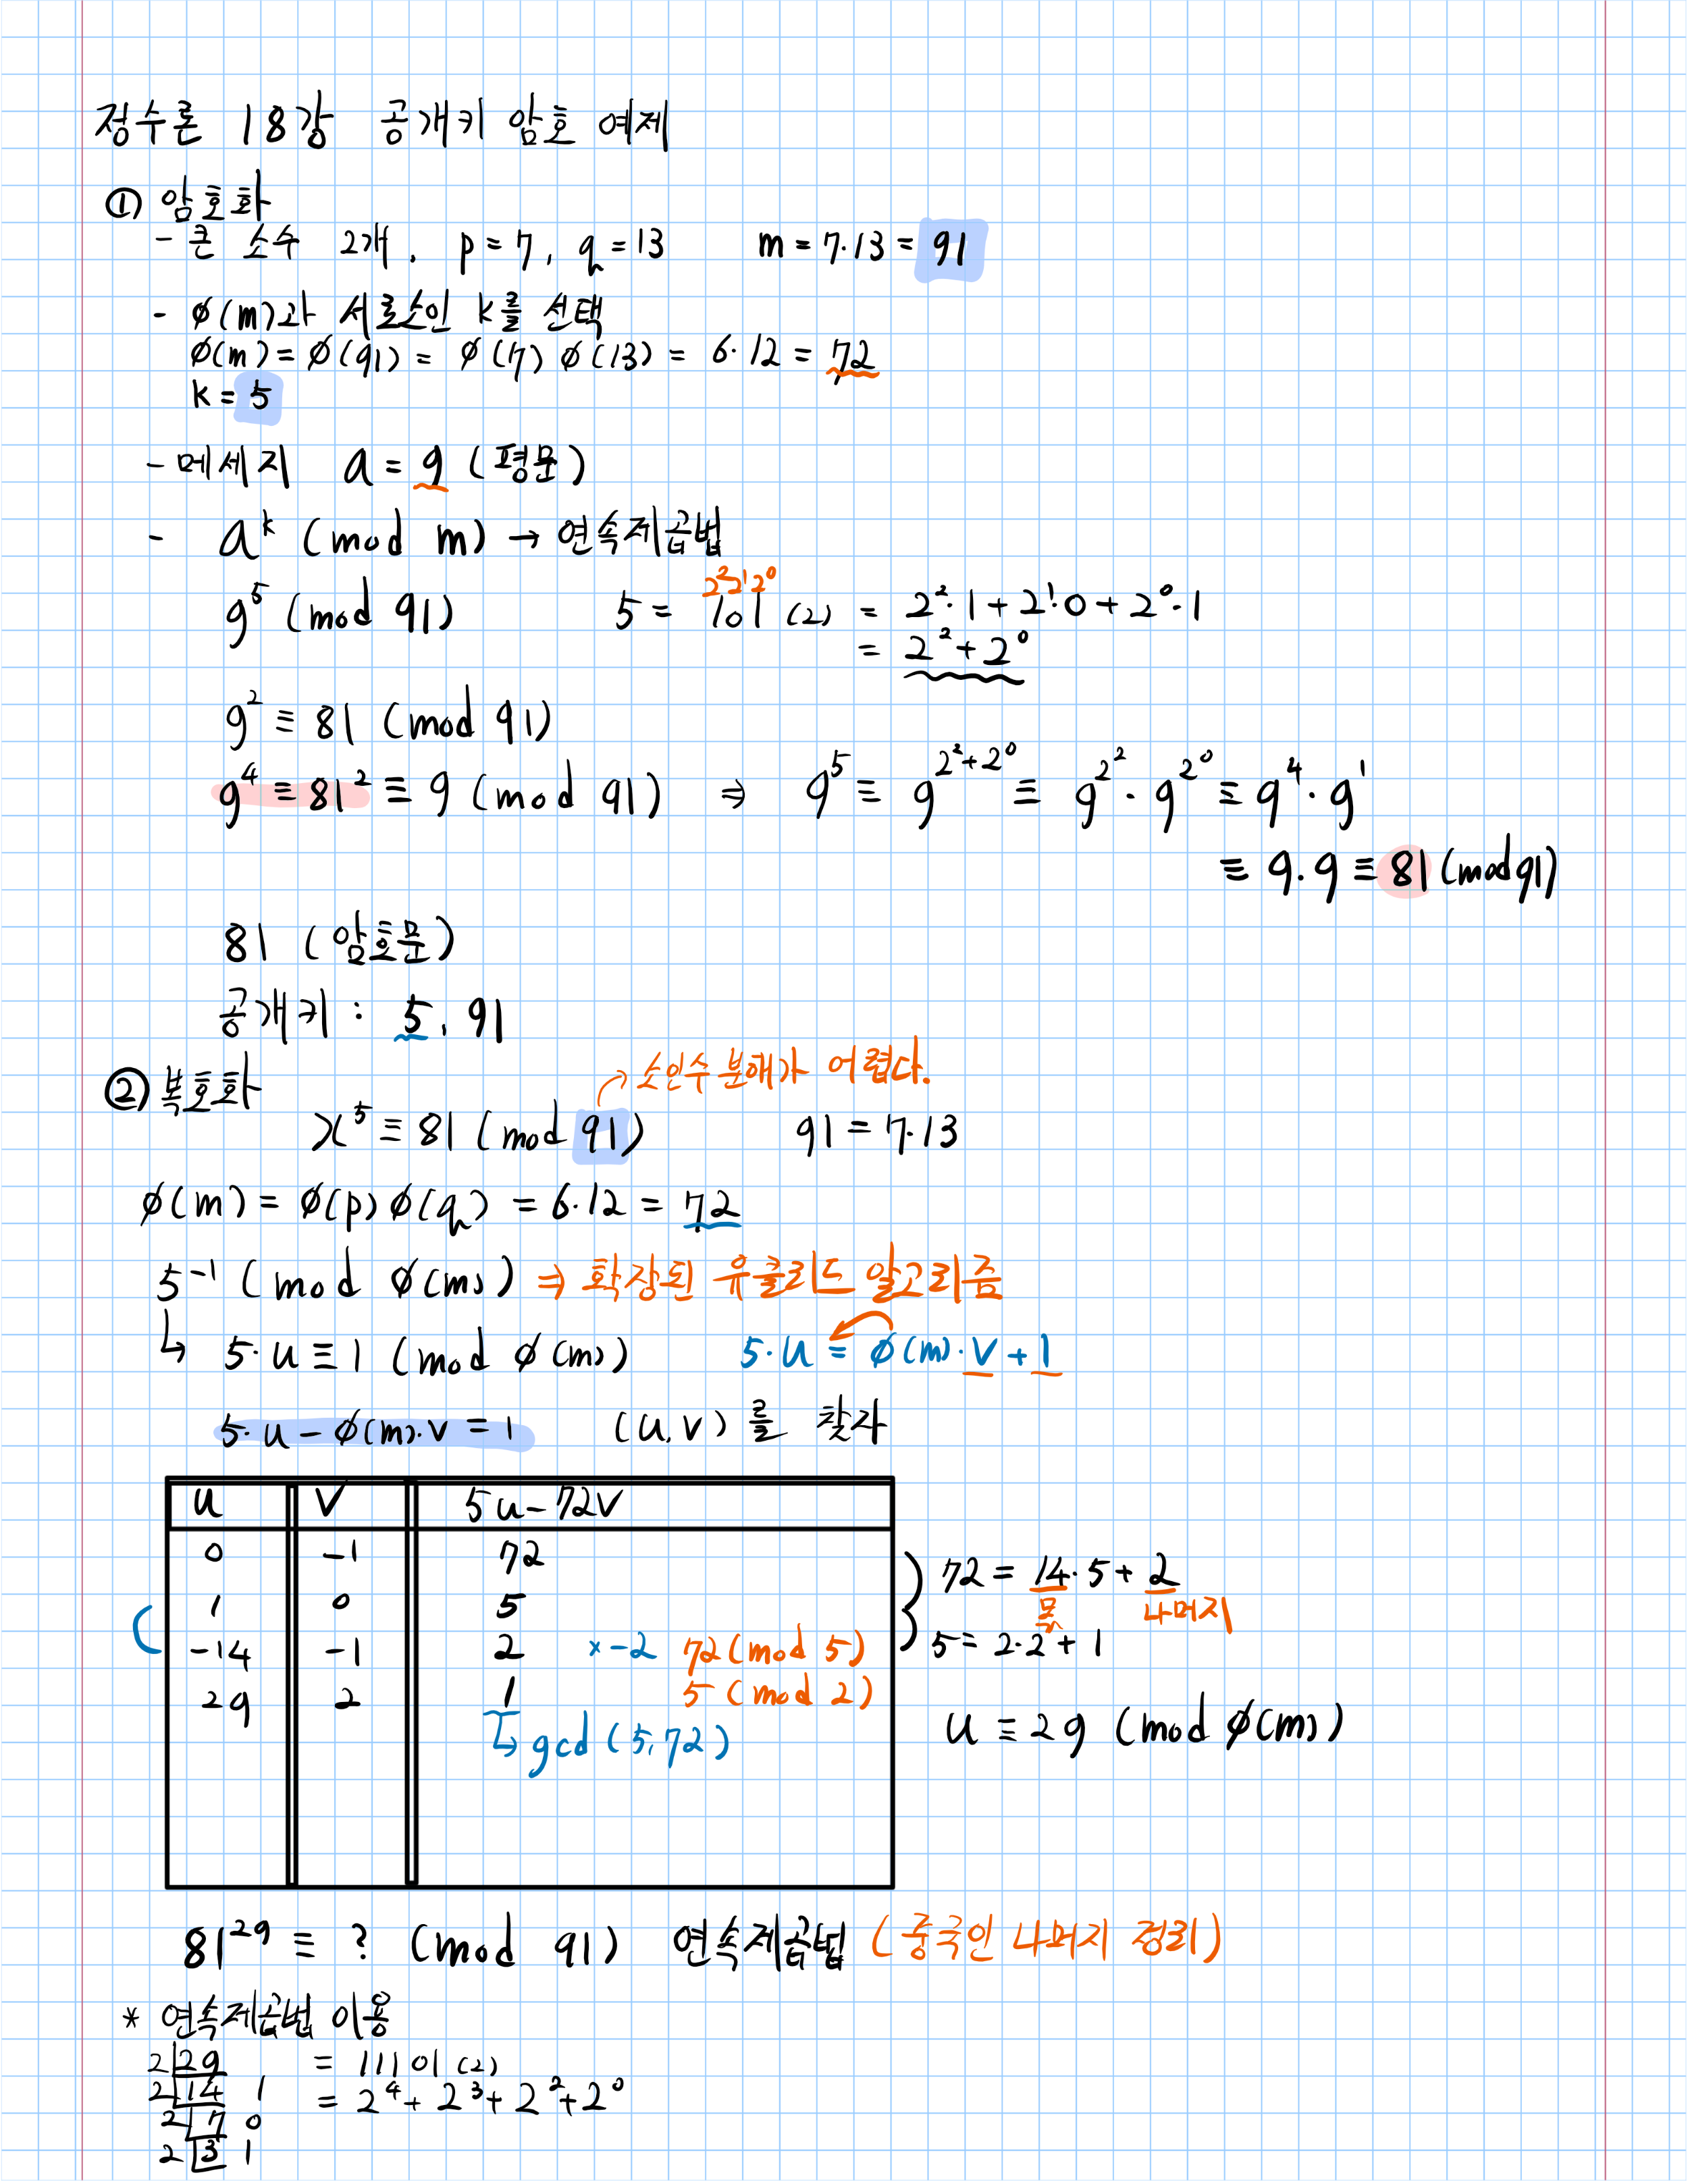 정수론 18강 공개키 암호 예제
① 암호화
- 큰 소수 2개, p = 7, q = 13 m = 7·13 = 91
- ∅(m)과 서로소인 k를 선택
∅(m) = ∅(91) = ∅(7) ∅(13) = 6·12 = 72
k = 5
- 메세지 a = 9 (평문)
- a^k (mod m) → 연속제곱법
2² 2¹ 2⁰
9⁵ (mod 91) 5 = 101 (2) = 2²·1 + 2¹·0 + 2⁰·1
= 2² + 2⁰
9² ≡ 81 (mod 91)
9⁴ ≡ 81² ≡ 9 (mod 91) ⇒ 9⁵ ≡ 9^(2²+2⁰) ≡ 9^(2²) · 9^(2⁰) ≡ 9⁴ · 9¹
≡ 9·9 ≡ 81 (mod 91)
81 (암호문)
공개키 : 5, 91
② 복호화 → 소인수 분해가 어렵다.
x⁵ ≡ 81 (mod 91) 91 = 7·13
∅(m) = ∅(p) ∅(q) = 6·12 = 72
5⁻¹ (mod ∅(m)) ⇒ 확장된 유클리드 알고리즘
↳ 5·u ≡ 1 (mod ∅(m)) 5·u = ∅(m)·v + 1
5·u - ∅(m)·v = 1 (u, v) 를 찾자
u v 5u - 72v
0 -1 72
1 0 5
-14 -1 2 × -2 72 (mod 5)
29 2 1 5 (mod 2)
↳ gcd (5, 72)
72 = 14·5 + 2
몫 나머지
5 = 2·2 + 1
u ≡ 29 (mod ∅(m))
81²⁹ ≡ ? (mod 91) 연속제곱법 (중국인 나머지 정리)
* 연속제곱법 이용
2 29 = 11101 (2)
2 14 1 = 2⁴ + 2³ + 2² + 2⁰
2 7 0
2 3 1